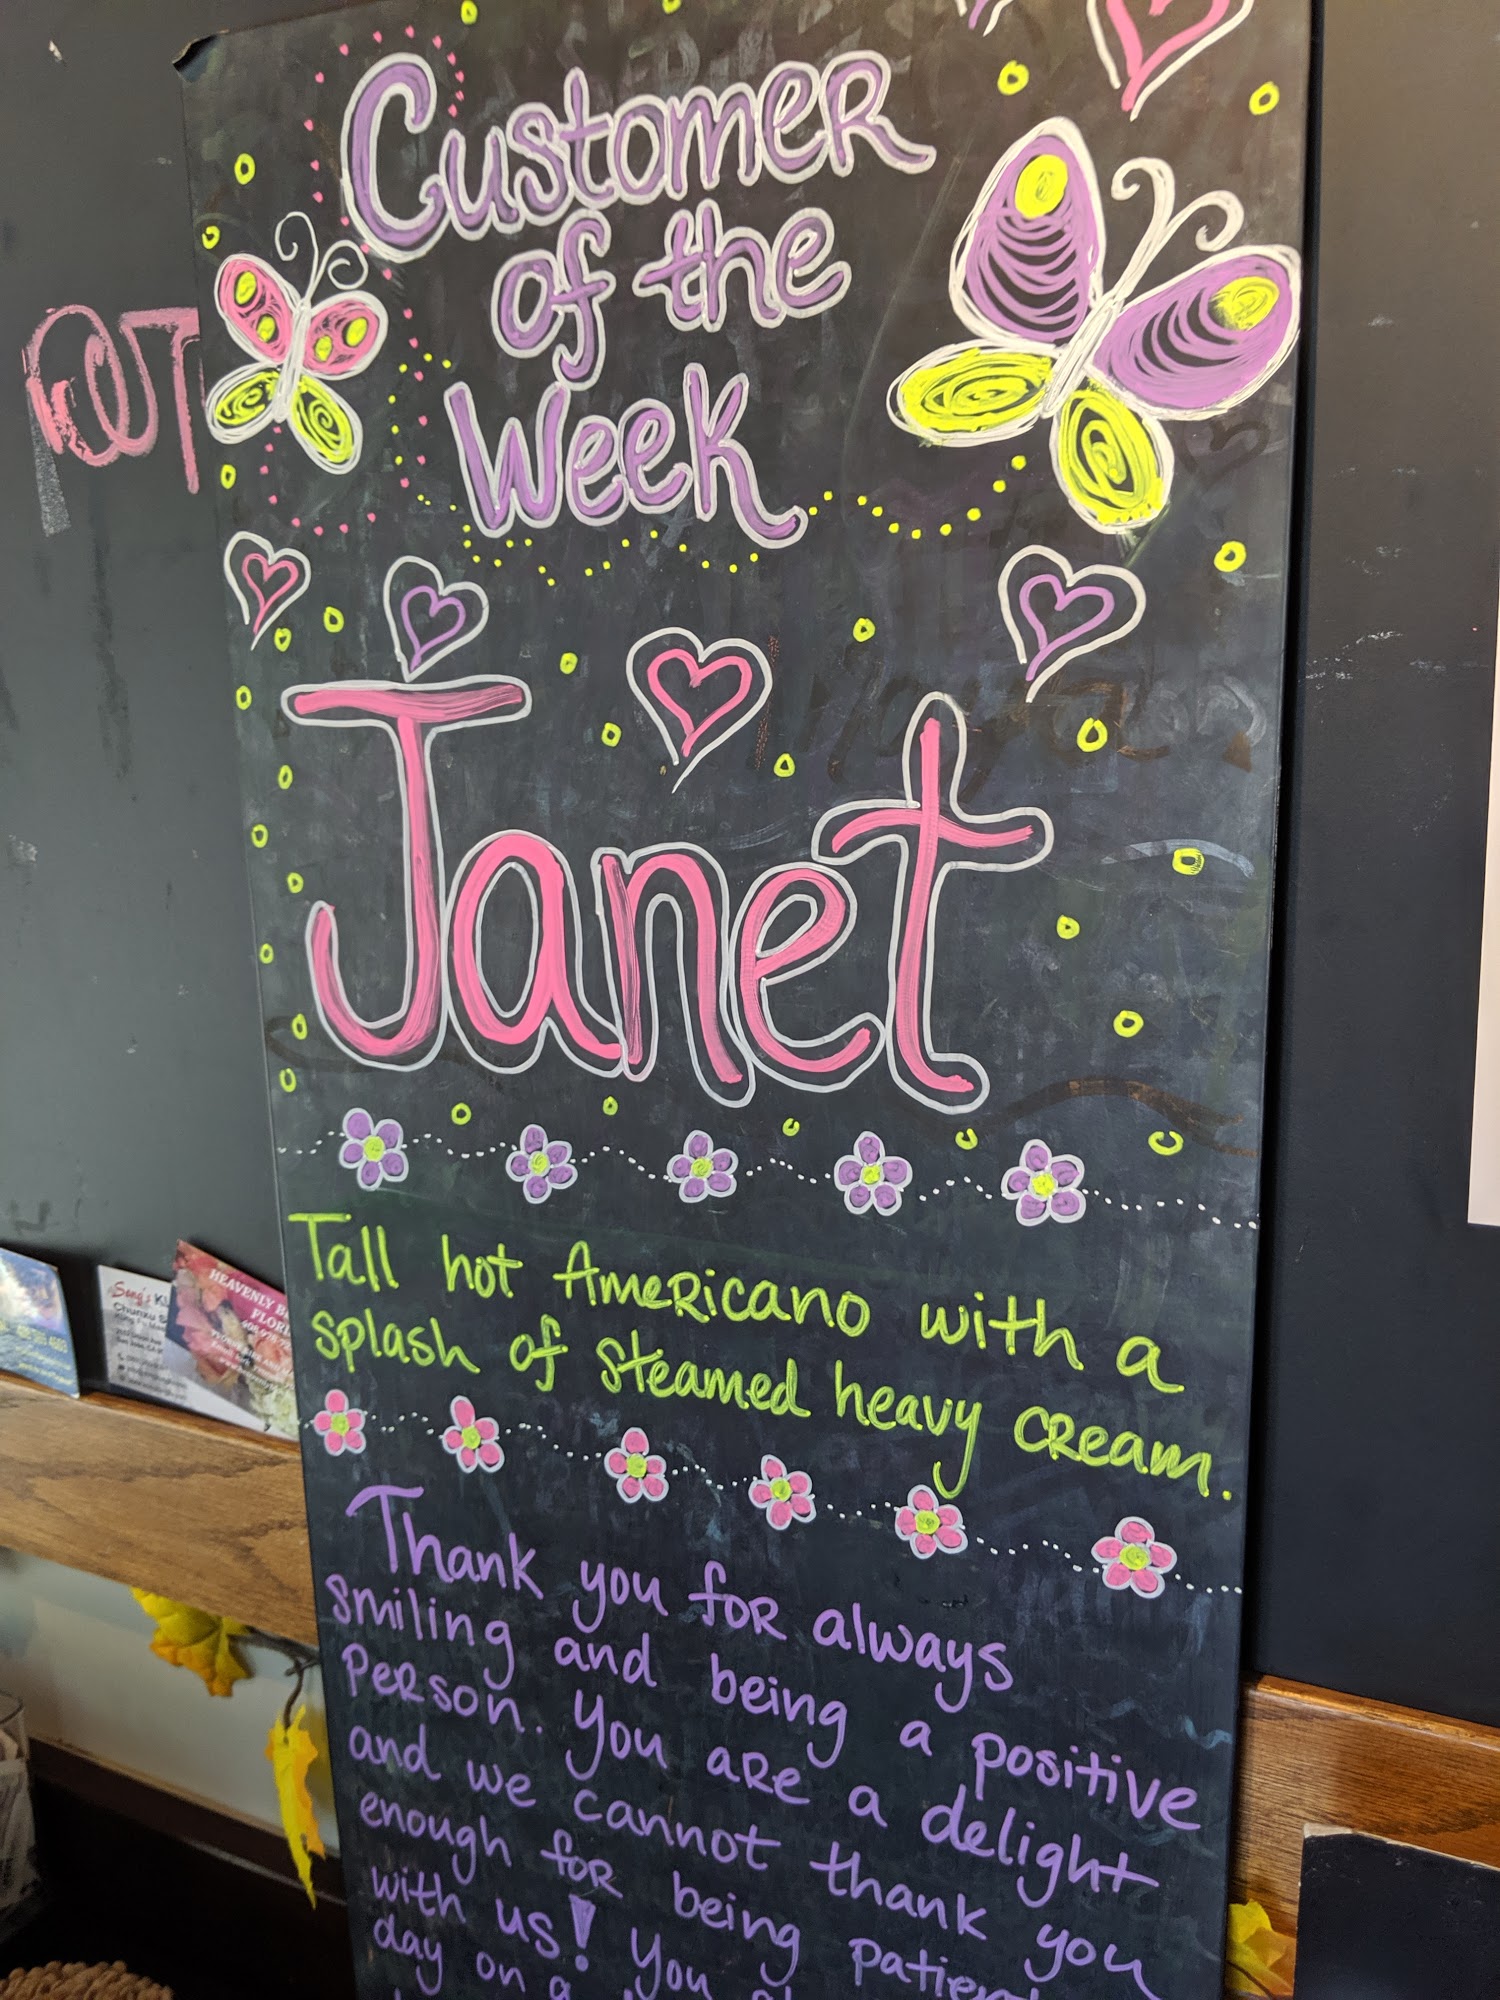 Customer
of the
Week
Janet
Tall hot Americano with a
splash of steamed heavy cream.
Thank you for always
smiling and being a positive
person. You are a delight
and we cannot thank you
enough for being
with us! You
day on a
HEAVENLY